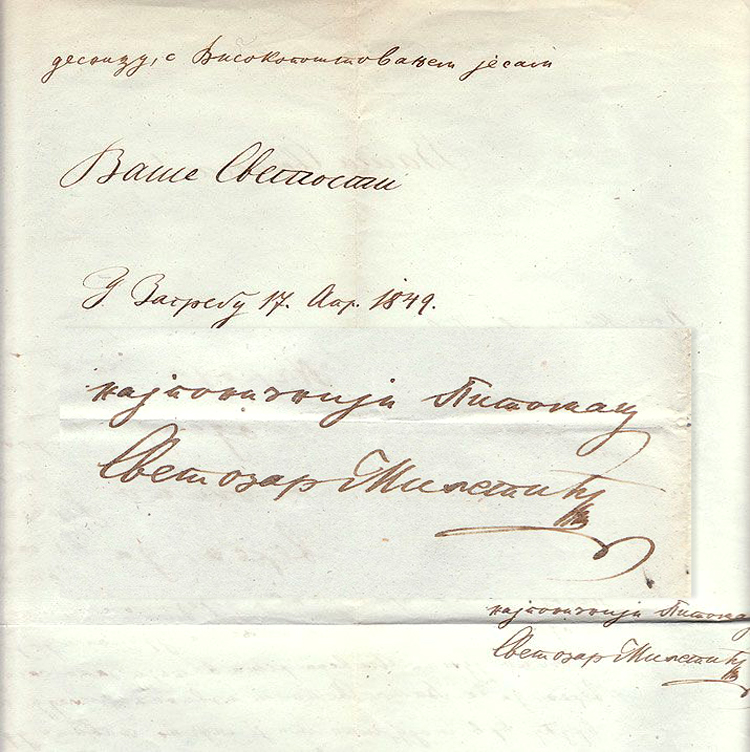 десницу, с Високопоштовањем јесам
Ваше Светлости
У Загребу 17. Апр. 1849.
најпонизнији Питомац
Светозар Милетић
најпонизнији Питомац
Светозар Милетић